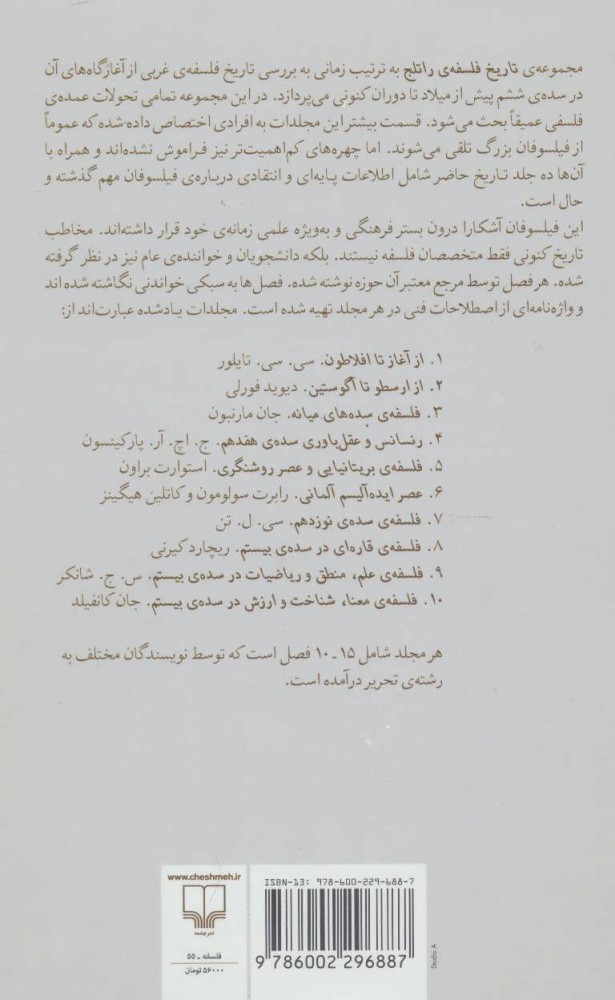 مجموعه‌ی تاریخ فلسفه‌ی راتلج به ترتیب زمانی به بررسی تاریخ فلسفه‌ی غربی از آغازگاه‌های آن
در سده‌ی ششم پیش از میلاد تا دوران کنونی می‌پردازد. در این مجموعه تمامی تحولات عمده‌ی
فلسفی عمیقاً بحث می‌شود. قسمت بیشتر این مجلدات به افرادی اختصاص داده‌شده که عموماً
از فیلسوفان بزرگ تلقی می‌شوند. اما چهره‌های کم‌اهمیت‌تر نیز فراموش نشده‌اند و همراه با
آن‌ها ده جلد تاریخ حاضر شامل اطلاعات پایه‌ای و انتقادی درباره‌ی فیلسوفان مهم گذشته و
حال است.
این فیلسوفان آشکارا درون بستر فرهنگی و به‌ویژه علمی زمانه‌ی خود قرار داشته‌اند. مخاطب
تاریخ کنونی فقط متخصصان فلسفه نیستند. بلکه دانشجویان و خواننده‌ی عام نیز در نظر گرفته
شده. هر فصل توسط مرجع معتبر آن حوزه نوشته شده. فصل‌ها به سبکی خواندنی نگاشته شده اند
و واژه‌نامه‌ای از اصطلاحات فنی در هر مجلد تهیه شده است. مجلدات یادشده عبارت‌اند از:
۱. از آغاز تا افلاطون. سی. سی. تایلور
۲. از ارسطو تا آگوستین. دیوید فورلی
۳. فلسفه‌ی سده‌های میانه. جان مارنبون
۴. رنسانس و عقل‌باوری سده‌ی هفدهم. ج. اچ. آر. پارکینسون
۵. فلسفه‌ی بریتانیایی و عصر روشنگری. استوارت براون
۶. عصر ایده‌آلیسم آلمانی. رابرت سولومون و کاتلین هیگینز
۷. فلسفه‌ی سده‌ی نوزدهم. سی. ل. تن
۸. فلسفه‌ی قاره‌ای در سده‌ی بیستم. ریچارد کیرنی
۹. فلسفه‌ی علم، منطق و ریاضیات در سده‌ی بیستم. س. ج. شانکر
۱۰. فلسفه‌ی معنا، شناخت و ارزش در سده‌ی بیستم. جان کانفیلد
هر مجلد شامل ۱۵ ـ ۱۰ فصل است که توسط نویسندگان مختلف به
رشته‌ی تحریر درآمده است.
www.cheshmeh.ir
نشرچشمه
فلسفه ـ ۵۵
۵۶۰۰۰ تومان
ISBN-13: 978-600-229-688-7
9 786002 296887
Studio A